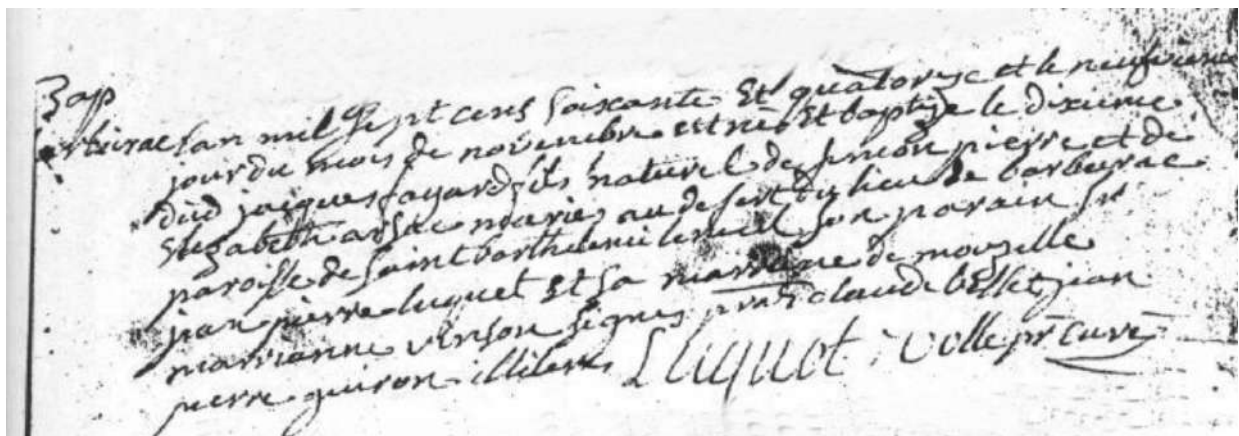 Bap
lan mil Sept cens Soixante Et quatorze et le neufvieme
jour du mois de novembre est né Et baptizé le dixieme
dud jacques fayard fils naturel de simon pierre et de
Elizabeth arsac mariés au desert du lieu de barbeyrac
paroisse de Saint barthelemi le son parain Sr
jean pierre luquet Et sa marraine demoizelle
marianne venson signes prnts claude bellet jean
pierre guiron illiteres Lluquet : volle pr curé